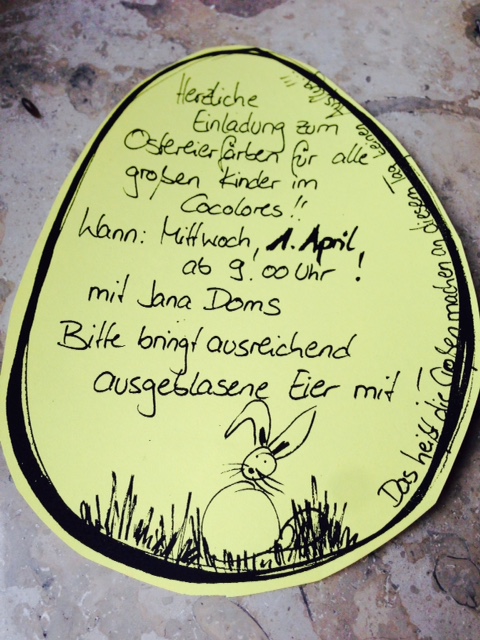 Herzliche
Einladung zum
Ostereierfärben für alle
großen Kinder im
Cocolores!!
Wann: Mittwoch, 1. April,
ab 9.00 Uhr!
mit Jana Doms
Bitte bringt ausreichend
ausgeblasene Eier mit!
Das heißt die Großen machen an diesem Tag einen Ausflug!!